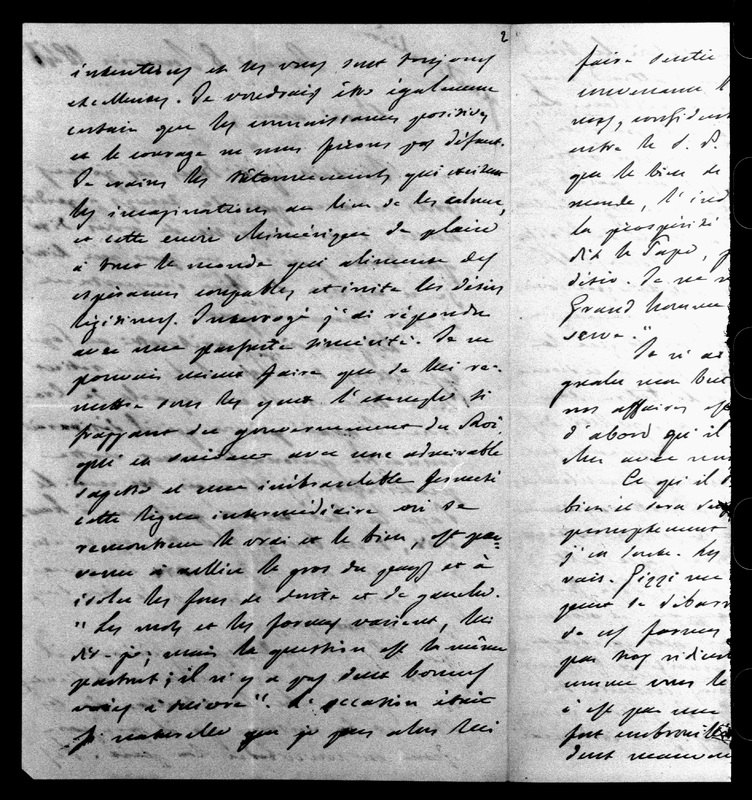 2
intentions et les vues sont toujours
excellentes. Je voudrais être également
certain que les connaissances positives
et le courage ne nous feront pas défaut.
Je crains les tâtonnements qui excitent
les imaginations au lieu de les calmer,
et cette envie chimérique de plaire
à tout le monde qui alimente des
espérances coupables et irrite les désirs
légitimes. Interrogé j'ai répondu
avec une parfaite sincérité. Je ne
pouvais mieux faire que de lui re-
mettre sous les yeux l'exemple si
frappant du gouvernement du Roi
qui en suivant avec une admirable
sagesse et une inébranlable fermeté
cette ligne intermédiaire où se
rencontrent le vrai et le bien, est par-
venu à rallier le gros du pays et à
isoler les fous de droite et de gauche.
" Les mots et les formes varient, lui
dis-je; mais la question est la même
partout; il n'y a pas deux bonnes
voies à suivre". L'occasion était
si naturelle que je pus alors lui
faire sentir
convenance
nos, confident
entre le S. P.
que le bien de
monde, l'ind
la prospérité
dit le Pape,
désir. Je ne
Grand homme
serve."
Je n'ai
nos affaires
d'abord qu'il
cher avec
Ce qui il
bien ce sera
promptement
j'en doute. Les
vais. Gizzi
peut se débarr
de ces formes
pas trop
comme vous le
à est par une
fort embrouill
dont